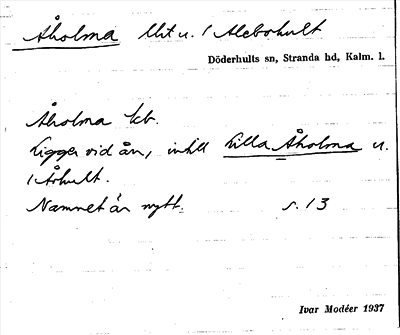 Åholma lht u. / Alebohult
Döderhults sn, Stranda hd, Kalm. l.
Åholma kb.
Ligger vid ån, intill Lilla Åholma u.
/ Århult.
Namnet är nytt. s. 13
Ivar Modéer 1937